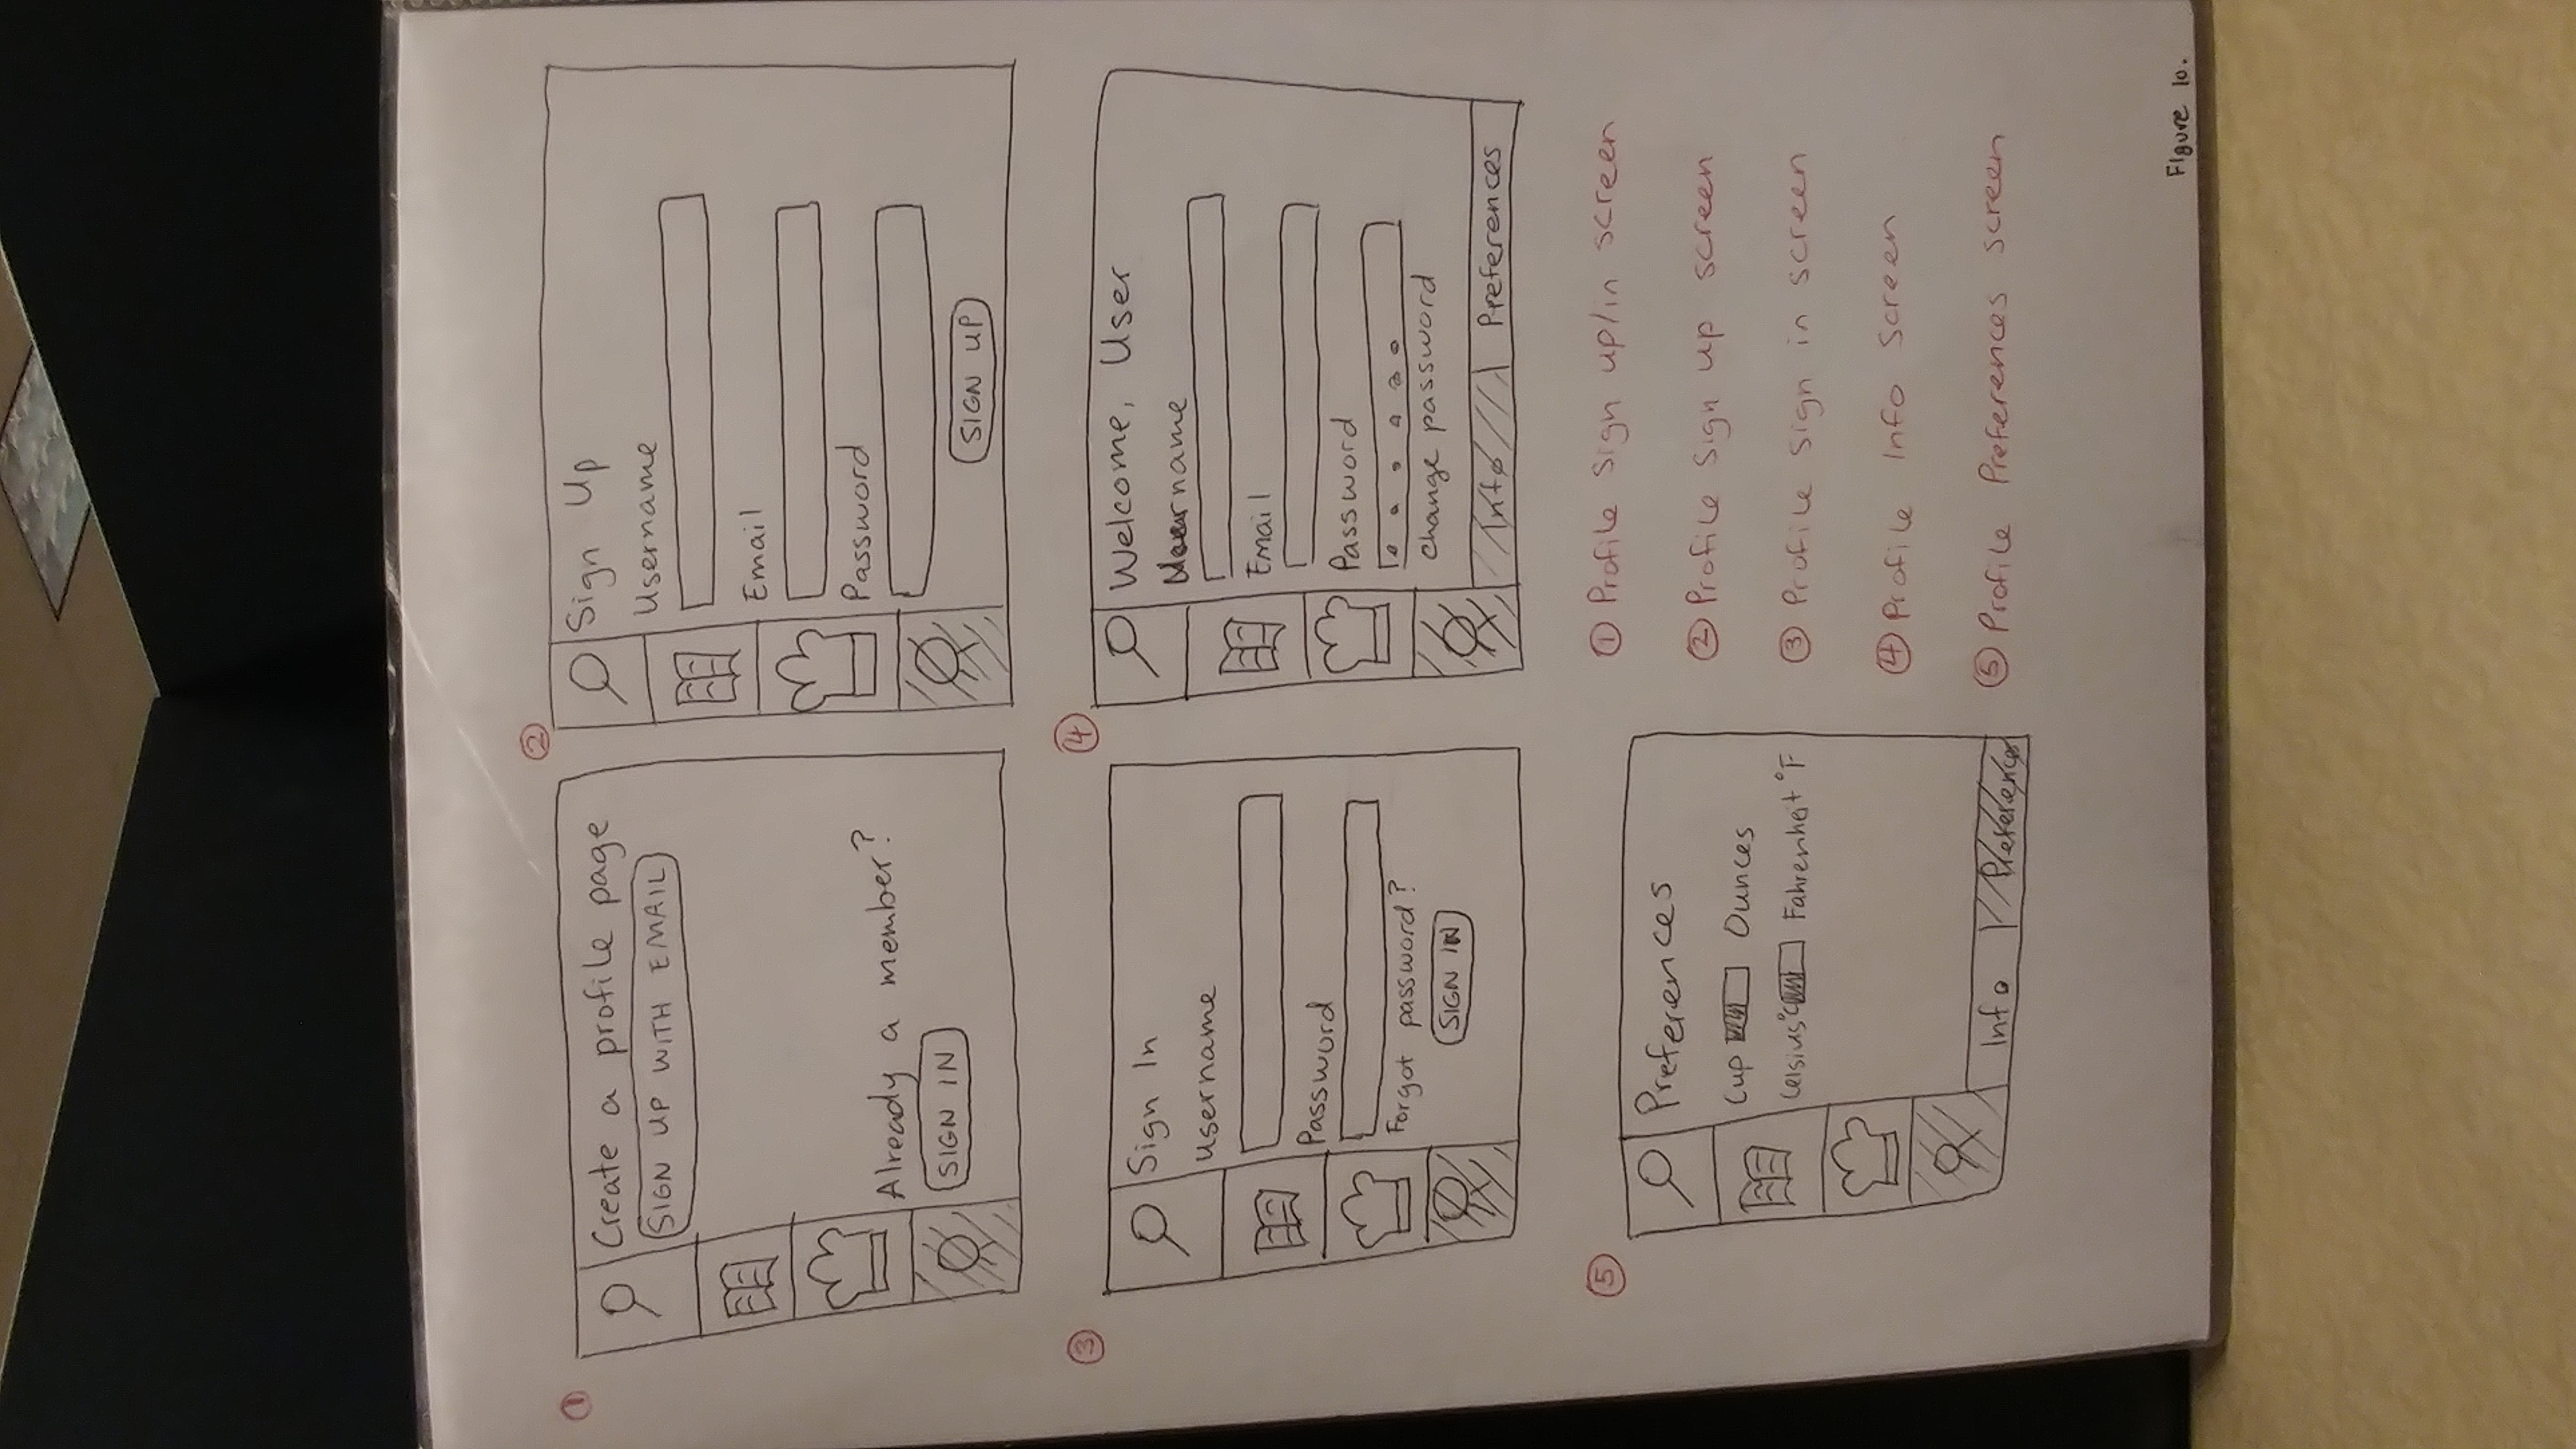 ①
Create a profile page
SIGN UP WITH EMAIL
Already a member?
SIGN IN
②
Sign Up
Username
Email
Password
SIGN UP
③
Sign In
Username
Password
Forgot password?
SIGN IN
④
Welcome, User
Username
Email
Password
change password
Info
Preferences
⑤
Preferences
Cup Ounces
Celsius°C Fahrenheit °F
Info Preferences
① Profile Sign up/in screen
② Profile Sign up screen
③ Profile Sign in screen
④ Profile Info Screen
⑤ Profile Preferences screen
Figure 10.